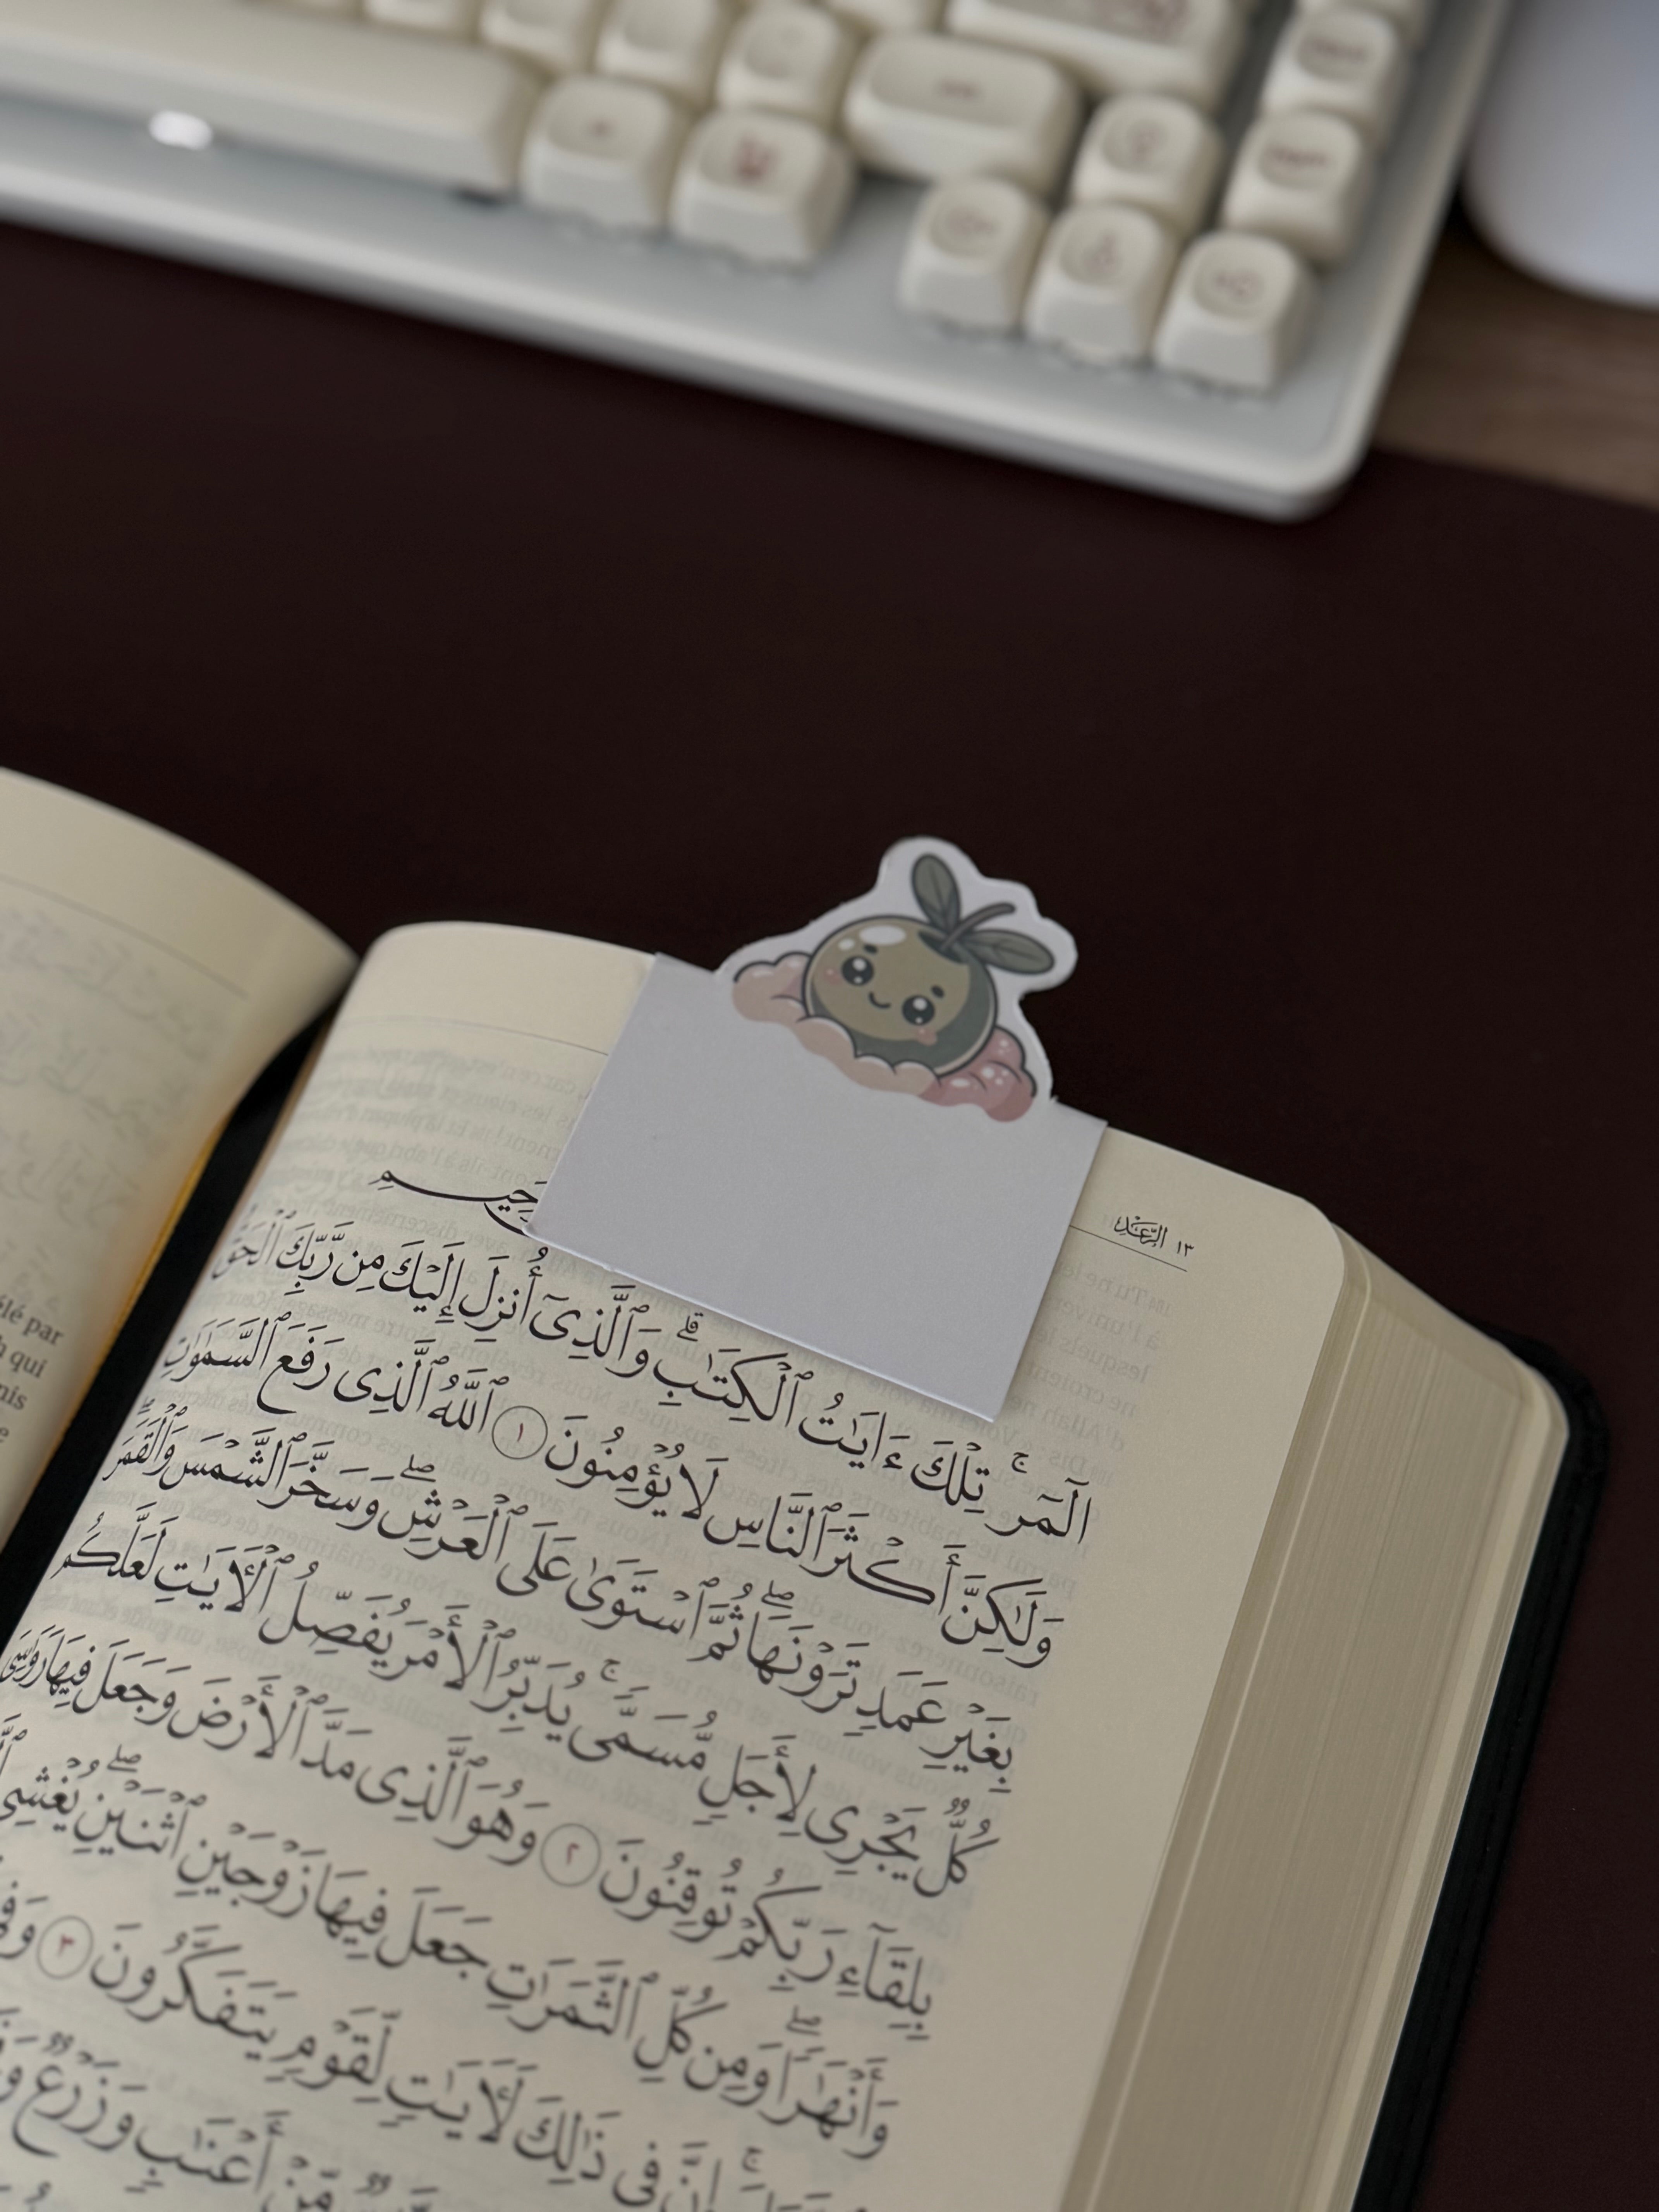 ١٣ الرَّعْد
حِيمِ
الٓمٓرۚ تِلْكَ ءَايَٰتُ ٱلْكِتَٰبِۗ وَٱلَّذِىٓ أُنزِلَ إِلَيْكَ مِن رَّبِّكَ ٱلْحَقُّ
وَلَٰكِنَّ أَكْثَرَ ٱلنَّاسِ لَا يُؤْمِنُونَ ١ ٱللَّهُ ٱلَّذِى رَفَعَ ٱلسَّمَٰوَٰتِ
بِغَيْرِ عَمَدٍ تَرَوْنَهَاۖ ثُمَّ ٱسْتَوَىٰ عَلَى ٱلْعَرْشِۖ وَسَخَّرَ ٱلشَّمْسَ وَٱلْقَمَرَۖ
كُلٌّ يَجْرِى لِأَجَلٍ مُّسَمًّىۚ يُدَبِّرُ ٱلْأَمْرَ يُفَصِّلُ ٱلْأَيَٰتِ لَعَلَّكُم
بِلِقَآءِ رَبِّكُمْ تُوقِنُونَ ٢ وَهُوَ ٱلَّذِى مَدَّ ٱلْأَرْضَ وَجَعَلَ فِيهَا رَوَٰسِىَ
وَأَنْهَٰرًاۖ وَمِن كُلِّ ٱلثَّمَرَٰتِ جَعَلَ فِيهَا زَوْجَيْنِ ٱثْنَيْنِۖ يُغْشِى
إِنَّ فِى ذَٰلِكَ لَأَيَٰتٍ لِّقَوْمٍ يَتَفَكَّرُونَ ٣
مِّنْ أَعْنَٰبٍ وَزَرْعٌ
élé par
qui